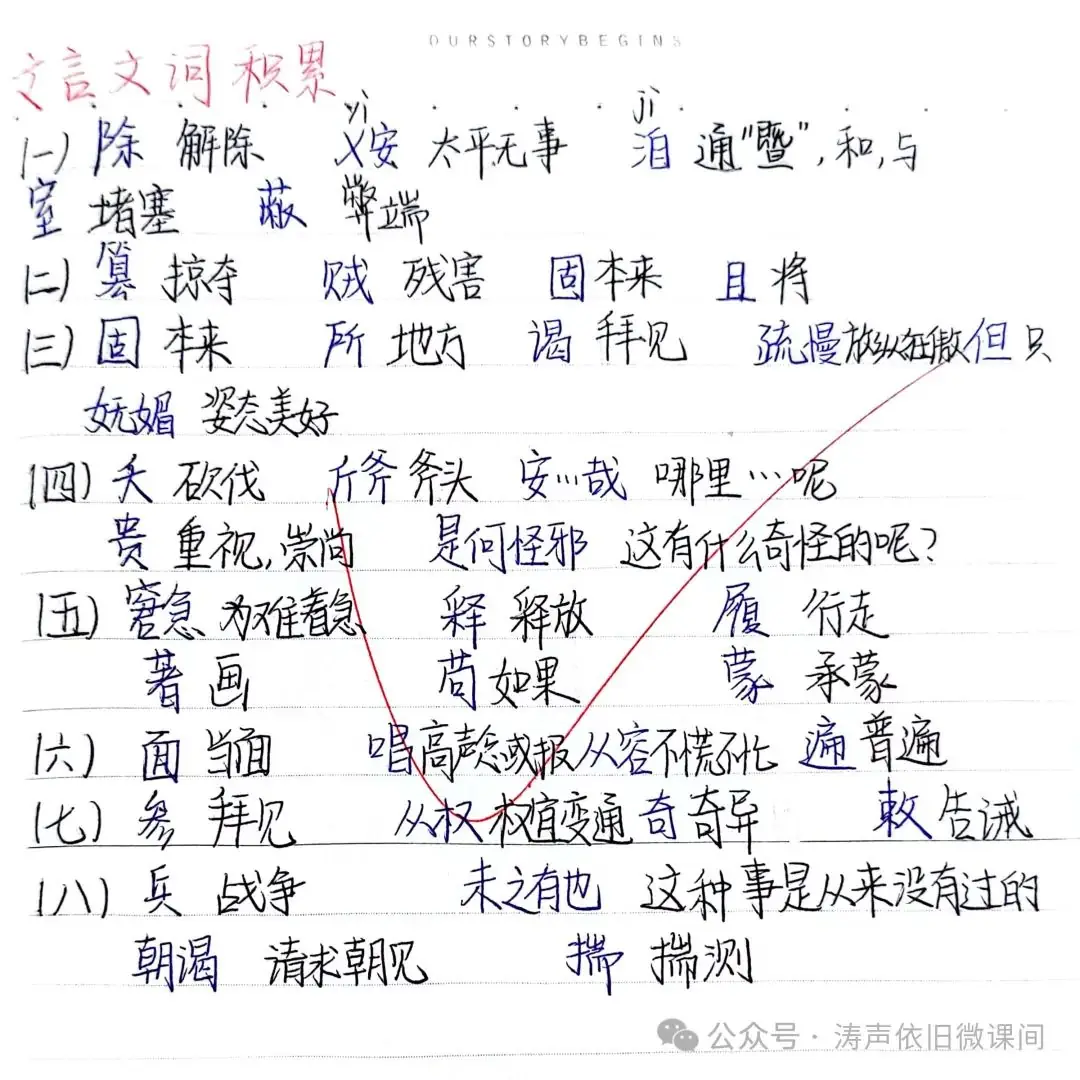 OURSTORYBEGINS
文言文词积累
yì jì
(一) 除 解除 乂安 太平无事 洎 通"暨",和,与
窒 堵塞 蔽 弊端
(二) 篡 掠夺 贼 残害 固 本来 且 将
(三) 固 本来 所 地方 谒 拜见 疏慢 放纵狂傲 但 只
妩媚 姿态美好
(四) 夭 砍伐 斤斧 斧头 安…哉 哪里…呢
贵 重视,崇尚 是何怪邪 这有什么奇怪的呢?
(五) 窘急 为难着急 释 释放 履 行走
著 画 苟 如果 蒙 承蒙
(六) 面 当面 唱 高声念或报 从容 不慌不忙 遍 普遍
(七) 参 拜见 从权 权宜变通 奇 奇异 敕 告诫
(八) 兵 战争 未之有也 这种事是从来没有过的
朝渴 请求朝见 揣 揣测
公众号·涛声依旧微课间